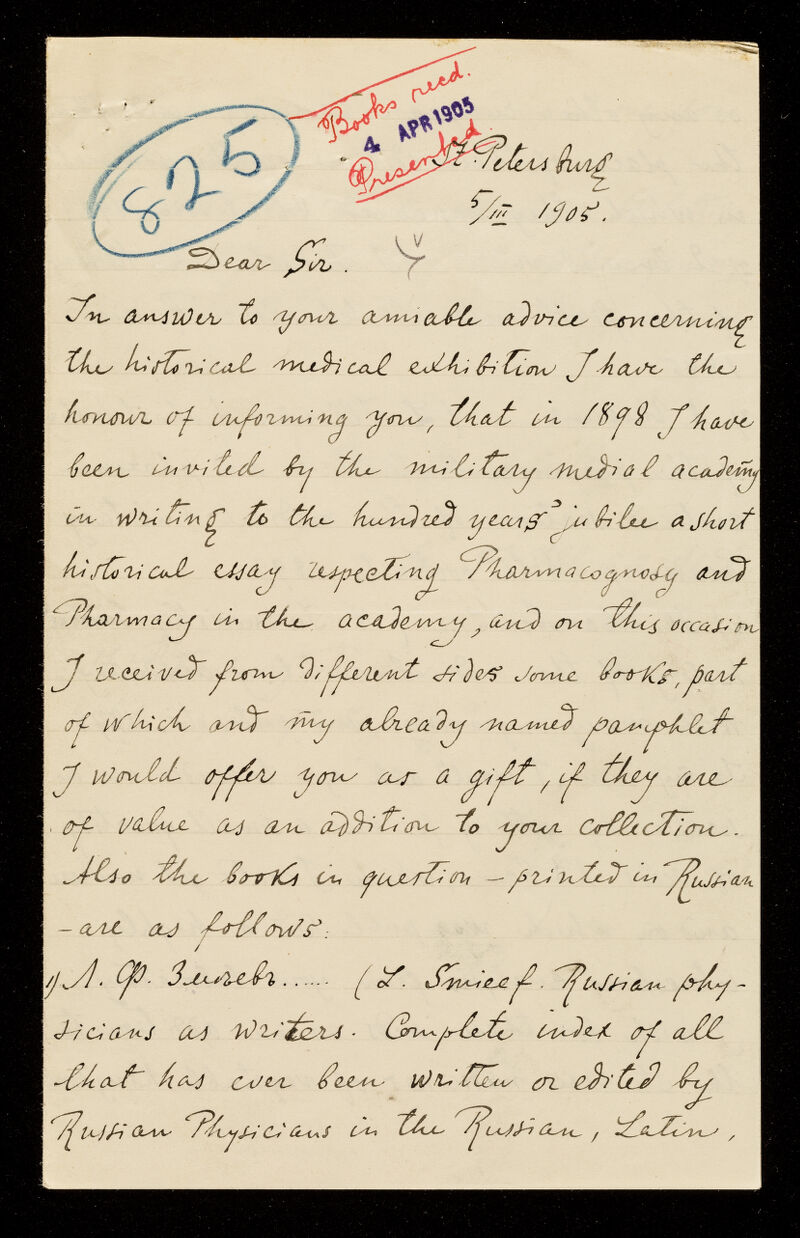 825
Books recd.
4 APR 1905
Presented
St. Petersburg
5/III 1905.
Dear Sir.
In answer to your amiable advice concerning
the historical medical exhibition I have the
honour of informing you, that in 1898 I have
been invited by the military medial academy
in writing to the hundred years' jubilee a short
historical essay respecting Pharmacognosy and
Pharmacy in the academy, and on this occasion
I received from different sides some books, part
of which and my already named pamphlet
I would offer you as a gift, if they are
of value as an addition to your collection.
Also the books in question – printed in Russian
– are as follows:
1) Л. Ф. Змѣевъ...... (L. Smieef. Russian phy-
sicians as writers. Complete index of all
that has ever been written or edited by
Russian Physicians in the Russian, Latin,